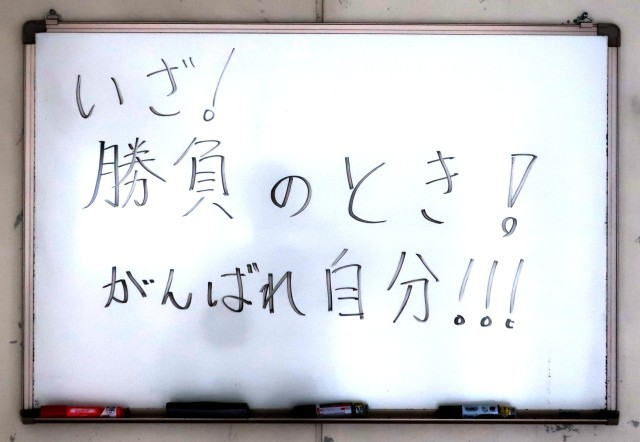 いざ!
勝負のとき!
がんばれ自分!!!